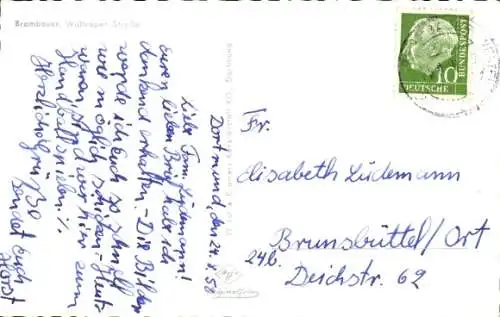 Brambauer, Waltroper Straße
Dortmund, den 24.
Liebe Fam. Lüdemann!
euren lieben Brief habe ich
dankend erhalten. Die Bilder
werde ich Euch so schnell
wie möglich schicken. Heute
waren wir hier zum
Handballspielen
Herzliche Grüße
sendet Euch
Horst
DEUTSCHE
BUNDESPOST
10
Fr.
Elisabeth Lüdemann
24b. Brunsbüttel/Ort
Deichstr. 62